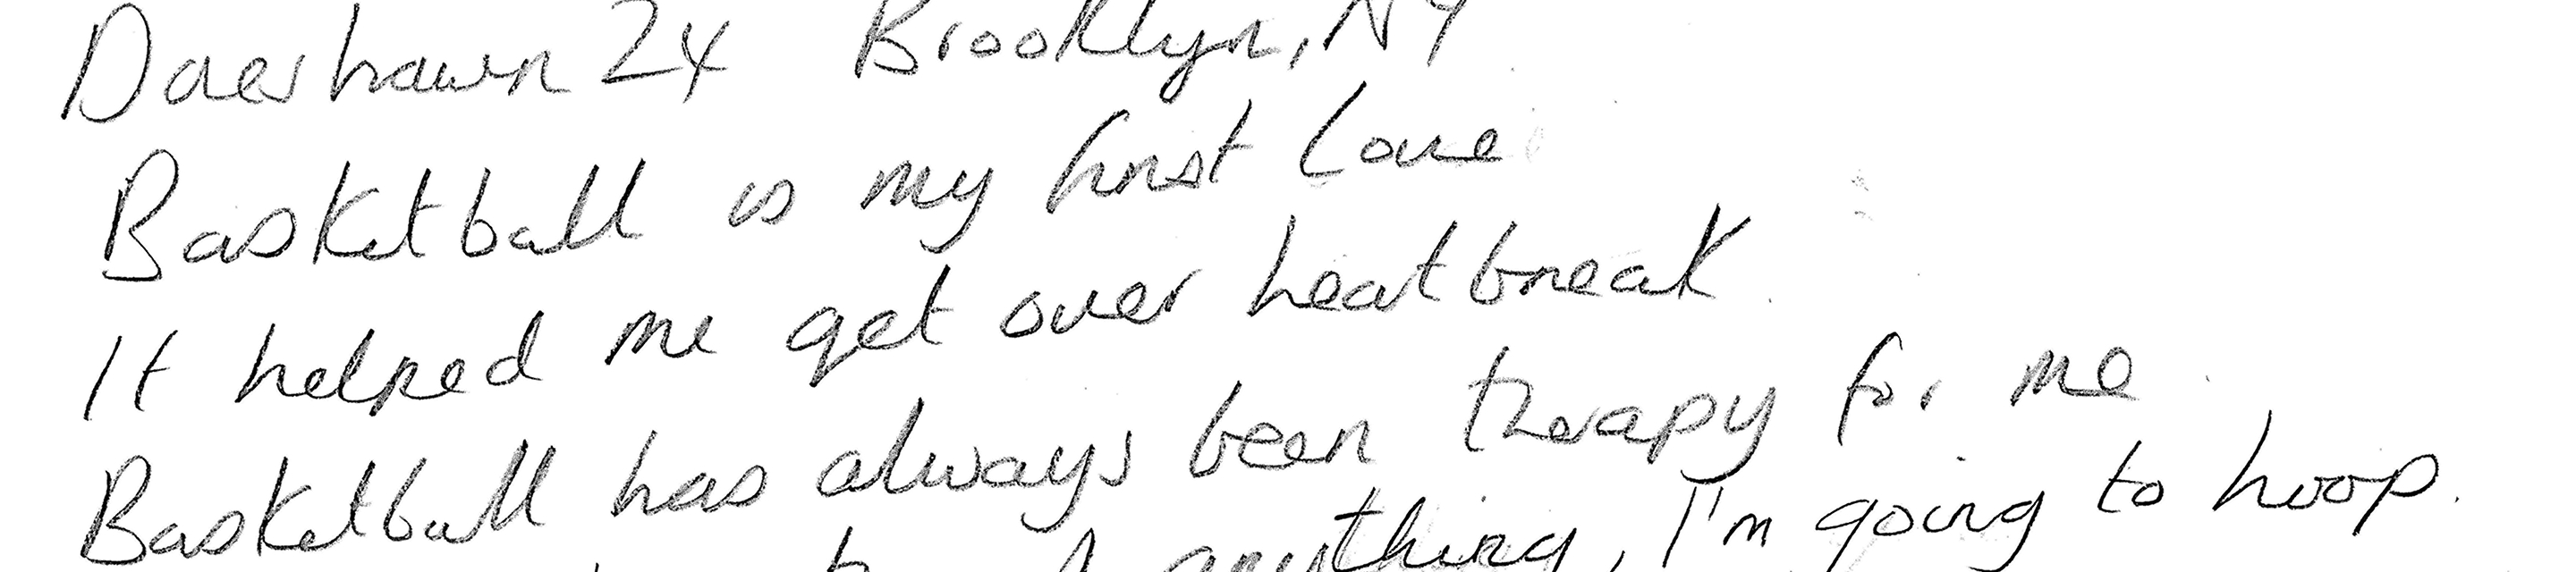 Daeshawn 24 Brooklyn, NY
Basketball is my first love
It helped me get over heatbreak
Basketball has always been therapy for me
anything, I'm going to hoop.